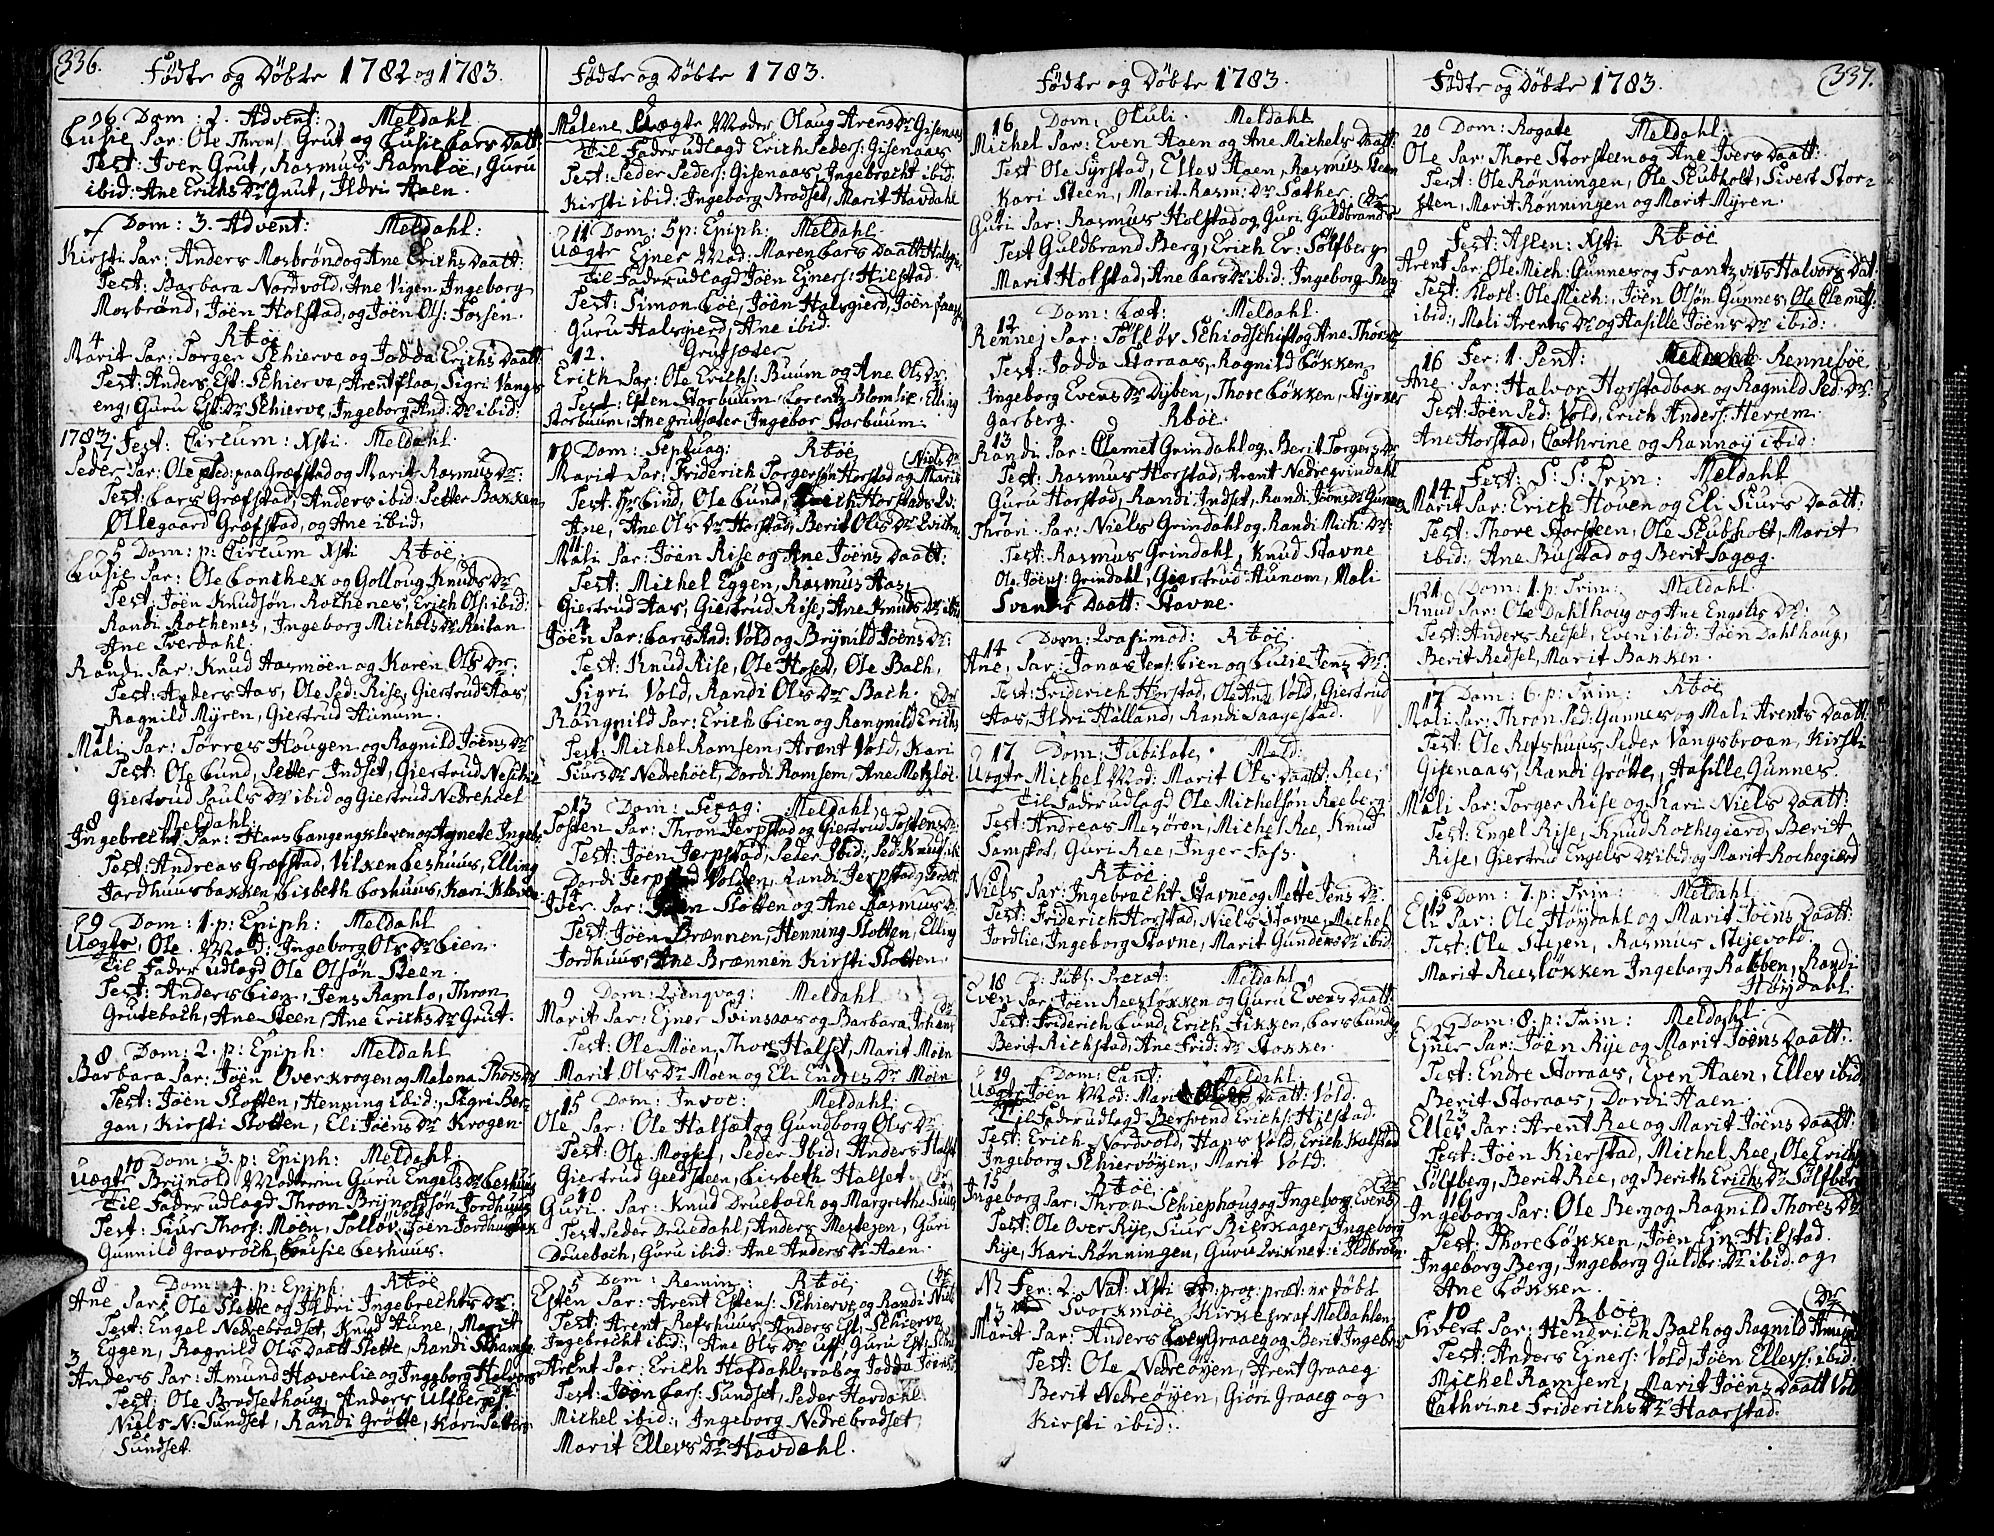 336.
Fødte og Døbte 1782 og 1783.
26 Dom: 2. Advent: Meldahl.
Lusie Par: Ole Throns: Grut og Lusie Lars Datt:
Test: Iver Grut, Rasmus Ramløe, Guru
ibid: Ane Erichs Dr Grut, Ildri Aaen.
Dom: 3. Advent: Meldahl:
Kirsti Par: Anders Mosbrønd og Ane Erichs Daatt:
Test: Barbara Nordvold, Ane Vigen, Ingeborg
Mosbrønd, Jøen Holstad, og Jøen Ols: Fossen.
4 Rboe
Marit Par: Torger Schierve og Jodda Erichs Daatt:
Test: Anders Est: Schierve, Arent flaa, Sigri Vangs
eng, Guru Est: Dr Schierve, Ingeborg And: Dr ibid:
1783. Fest: Circum: Xsti. Meldahl.
Peder Par: Ole Ped: paa Græfstad og Marit Rasmus Dr:
Test: Lars Græfstad, Anders ibid: Petter Bakken
Øllegaard Græfstad, og Ane ibid,
5 Dom: p: Circum Xsti Rboe:
Lusie Par: Ole Lonchex og Gollaug Knuds Dr
Test: Jøen Knudsøn, Rochenes, Erich Ols: ibid:
Randi Rochenes, Ingeborg Michels Dr Reitan
Ane Tverdahl.
Randi Par: Knud Aasmøen og Karen Ols Dr:
Test: Anders Aas, Ole Ped: Rise, Giertrud Aas,
Ragnild Myren, Giertrud Aunum.
7
Mali Par: Torres Hougen og Ragnild Jøens Dr
Test: Ole Lund, Petter Indset, Giertrud
Giertrud Pouls Dr ibid og Giertrud Nedrehoel
8 Meldahl:
Ingebrecht Par: Hans Langengskleven og Agnete Ingeb:
Test: Andreas Græfstad, Vilken Leshuus, Elling
Jordhuusbakken, Lisbeth Leshuus, Kari Kleven.
29 Dom: 1. p: Epiph: Meldahl
Uægte, Ole. Mod: Ingeborg Ols Dr Lien.
til Fader udlagd Ole Olsøn Steen.
Test: Anders Lien, Jens Ramlo, Thron
Grutebach, Ane Steen, Ane Erichs Dr Grut.
8 Dom: 2. p: Epiph: Meldahl
Barbara Par: Jøen Overkrogen og Malena Thors Dr
Test: Jøen Slotten, Henning ibid:, Sigri Ber-
gan, Kirsti Slotten, Eli Jøens Dr Krogen.
10 Dom: 3. p: Epiph: Meldahl.
Uægte Brynold Moderen Guru Engels Dr Leshuus
til Fader udlagd Thron Brynoldsøn Jordhuus
Test: Siur Thors: Moen, Tolløv, Jøen Jordhuusbak
Gunnild Gravroch, Lusie Leshuus.
8 Dom: 4. p: Epiph: Rboe
Ane Par: Ole Slette og Ildri Ingebrechts Dr:
Test: Engel Nedrebradset, Knud Hune, Marit
Eggen, Ragnild Ols Daatt Slette, Randi
3
Anders Par: Amund Hæverlie og Ingeborg Halvors
Test: Ole Brodsethoug, Anders Ulfberg,
Niels N: Sundset, Randi Grøtte, Kari Petters
Sundset.
Fødte og Døbte 1783.
2
Malene Uægte Moder Olaug Arens Dr Gisenaas
til Fader udlagd Erich Peders: Gisenaas
Test: Peder Peders: Gisenaas, Ingebrecht ibid:
Kirsti ibid: Ingeborg Brodset, Marit Havdahl
11 Dom: 5 p: Epiph: Meldahl.
Uægte Ejner Mod: Maren Lars Daatt:
til Fader udlagd Jøen Ejners: Hilstad
Test: Simon Løe, Jøen Halsgierd, Jøen
Guru Halsgierd, Ane ibid.
12. Grutsæter
Erich Par: Ole Erichs: Buum og Ane Ols Dr:
Test: Esten Storbuum, Lorentz Blomlie, Elling
Storbuum, Ane grutsæter, Ingebor Storbuum.
10 Dom: Septuag: Rboe (Niels Dr
Marit Par: Friderich Torgersøn Horstad og Marit
Test: Pr Lind, Ole Lund, Erich Horstad
Ane, Ane Ols Dr Horstad, Berit Ols Dr
11
Mali Par: Jøen Rise og Ane Jøens Daatt:
Test: Michel Eggen, Rasmus Aas,
Giertrud Aas, Giertrud Rise, Ane Knuds Dr ibid
4
Jøen Par: Lars And: Vold og Brynild Jøens Dr:
Test: Knud Rise, Ole Hosen, Ole Bach,
Sigri Vold, Randi Ols Dr Bach. (Dr
Rangnild Par: Erich Lien og Rangnild Erich,
Test: Michel Ramsem, Arent Vold, Kari
Siurs Dr Nedrehoel, Dordi Ramsem, Ane
13 Dom: Sexag: Meldahl,
Tosten Par: Thron Jerpstad og Giertrud Tostens Dr:
Test: Jøen Jerpstad, Peder ibid:, Ped: Knuds:
Dordi Jerpstad Volden, Randi Jerpstad,
Iver Par: Slotten og Ane Rasmus D:
Test: Jøen Brønnen, Henning Slotten, Elling
Jordhuus, Ane Brænnen Kirsti Slotten.
9 Dom: Qvinqvag: Meldahl (Dr
Marit Par: Ejner Svinsaas og Barbara, Johans
Test: Ole Moen, Thore Halset, Marit Moen
Marit Ols Dr Moen og Eli Endres Dr Moen
15 Dom: Invoc: Meldahl:
Ole Par: Ole Halset og Gundborg Ols Dr
Test: Ole Mogset, Peder Ibid:, Anders Halset
Giertrud Geedsteen, Lisbeth Halset. (Dr
10
Guri. Par: Knud Druebach og Margrethe Siurs
Test: Peder Druedahl, Anders, Guri
Druebach, Guru ibid: Ane Anders Dr Aaen.
5 Dom: Remin: Rboe (Dr
Esten Par: Arent Estens: Schierve og Randi Niels
Test: Arent Refshuus, Anders Est: Schierve
Ingebrecht ibid:, Ane Ols Dr Uff, Guru Est:
Arent Par: Erich Hofdahlsvab og Jodda Jøens
Test: Jøen Lars: Sundset, Peder Havdahl
Michel ibid:, Ingeborg Nedrebradset,
Marit Ellevs Dr Havdahl.
Fødte og Døbte 1783.
16 Dom: Oculi. Meldahl.
Michel Par: Even Aaen og Ane Michels Daatt:
Test Ole Syrstad, Ellev Aaen, Rasmus Steen
Kari Steen, Marit Rasm: Dr Sæther. (Dr
Guri Par: Rasmus Holstad og Guri Guldbrands
Test Guldbrand Berg, Erich Er: Sølfberg
Marit Hofstad, Ane Lars Dr ibid: Ingeborg Berg
Dom: Læt: Meldahl.
12
Rennej Par: Tolløv Schiodschift og Ane Thors Dr
Test: Jodda Storaas, Ragnild Løkken
Ingeborg Evens Dr Dyben, Thore Løkken, Styrker
Garberg. Rboe.
13
Randi Par: Clemet Grindahl og Berit Torgers Dr
Test: Rasmus Horstad, Arent Nedregrindahl
Guru Horstad, Randi Indset, Randi Jøens Dr Gunnes
7
Thron Par: Niels Grindahl og Randi Mich: Dr:
Test: Rasmus Grindahl, Knud Stavne
Ole Jøens: Grindahl, Giertrud Hunom, Mali
Svends Daatt: Stavne.
14 Dom: Qvasimod: Rboe:
Ane, Par: Jonas Jens: Lien og Lucie Jens Dr:
Test: Friderich Horstad, Ole And: Vold, Giertrud
Aas, Ildri Halland, Randi Saagestad.
17 Dom: Jubilate. Meld:
Uægte Michel Mod: Marit Ols Daatt: Ree;
til Fader udlagd Ole Michelsøn Reeberg:
Test: Andreas Mesøren, Michel Ree, Knud
Samskot, Guri Ree, Inger Foss.
8 Rboe:
Niels Par: Ingebracht Stavne og Mette Jens Dr:
Test: Friderich Horstad, Niels Stavne, Michel
Jordlie, Ingeborg Stavne, Marit Gunders Dr ibid
18 D: Publ: Precat: Meldahl
Even Par: Jøen Reesløkken og Guru Evens Daatt:
Test: Friderich Lund, Erich Fikken, Lars Lund
Berit Rickstad, Ane Frid: Dr Stokker.
19 Dom: Cant: Meldahl:
Uægte Jøen Mod: Marit Ols Daatt: Vold.
til Fader udlagd Bersvend Erichs: Hilstad.
Test: Erich Nordvold, Hans Vold, Erich Kalstad
Ingeborg Schiervøyen, Marit Vold.
15 Rboe: (Dr
Ingeborg Par: Thron Schiephoug og Ingeborg Evens
Test: Ole Over Rije, Siur Bierkager, Ingeborg
Rije, Kari Rønningen, Guru Qviknet: i Ildbroen.
NB Fer: 2. Nat: Xsti D: proc: præt: er døbt
13 ved Svorkmoe Kirke forst Meldahlen
Marit Par: Anders Graaeg og Berit Ingebr
Test: Ole Nedreøyen, Arent Graaeg
Berit Nedreøyen, Giøri Graaeg og
Kirsti ibid:.
337.
Fødte og Døbte 1783.
20 Dom: Rogate Meldahl.
Ole Par: Thore Storsteen og Ane Ivers Daatt:
Test: Ole Rønningen, Ole Skubholt, Sivert Stor-
steen, Marit Rønningen og Marit Myren.
9 Fest: Ascen: Xsti Rboe
Arent Par: Ole Mich: Gunnes og Frantz Halvors Dat:
Test: Klock: Ole Mich:, Jøen Olsøn Gunnes, Ole Clemets:
ibid:, Mali Arents Dr og Aasille Jøens Dr ibid:
16 Fer: 1. Pent: Renneboe
Ane Par: Halvor Horstadbak og Ragnild Ped: Dr:
Test: Jøen Ped: Vold, Erich Anders: Herrem.
Ane Horstad, Cathrine og Rannøy ibid:
Fest: S. S: Trin: Meldahl
14
Marit Par: Erich Hoven og Eli Siurs Daatt:
Test: Thore Storsteen, Ole Skubholt, Marit
ibid: Ane Bustad og Berit Sagøg.
21 Dom: 1. p: Trin: Meldahl
Knud Par: Ole Dahlhoug og Ane Engels Dr:
Test: Anders Redsel, Even ibid: Jøen Dahlhoug,
Berit Redsel, Marit Bakken.
17 Dom: 6. p: Trin: Rboe
Mali Par: Thron Ped: Gunnes og Mali Arents Daatt
Test: Ole Refshuus, Peder Vangsbroen, Kirsti
Gisenaas, Randi Grøtte, Aasille Gunnes.
8
Mali Par: Torger Rise og Kari Niels Daatt:
Test: Engel Rise, Knud Rochegierd, Berit
Rise, Giertrud Engels Dr ibid og Marit Rochegierd
15 Dom: 7. p: Trin: Meldahl.
Eli Par: Ole Høydahl og Marit Jøens Daatt:
Test: Ole Stejen, Rasmus Stejevold.
Marit Reesløkken Ingeborg Rabben, Randi
Høydahl:
22 Dom: 8. p: Trin: Meldahl
Ejner Par: Jøen Rije og Marit Jøens Daatt:
Test: Endre Storaas, Even Aaen, Ellev ibid
Berit Storaas, Dordi Aaen.
23
Ellev Par: Arent Ree og Marit Jøens Daatt:
Test: Jøen Kierstad, Michel Ree, Ole Erichs:
Sølfberg, Berit Ree, og Berith Erichs Dr Sølfberg
16
Ingeborg Par: Ole Berg og Ragnild Thores Dr
Test: Thore Løkken, Jøen Ejn: Hilstad.
Ingeborg Berg, Ingeborg Guldbr: Dr ibid. og
Ane Løkken.
10 Rboe (Dr
Sivert Par: Hendrich Bach og Ragnild
Test: Anders Ejners: Vold, Jøen Ellevs: ibid:
Michel Ramsem, Marit Jøens Daatt Vold
Cathrine Friderichs Dr Haarstad.